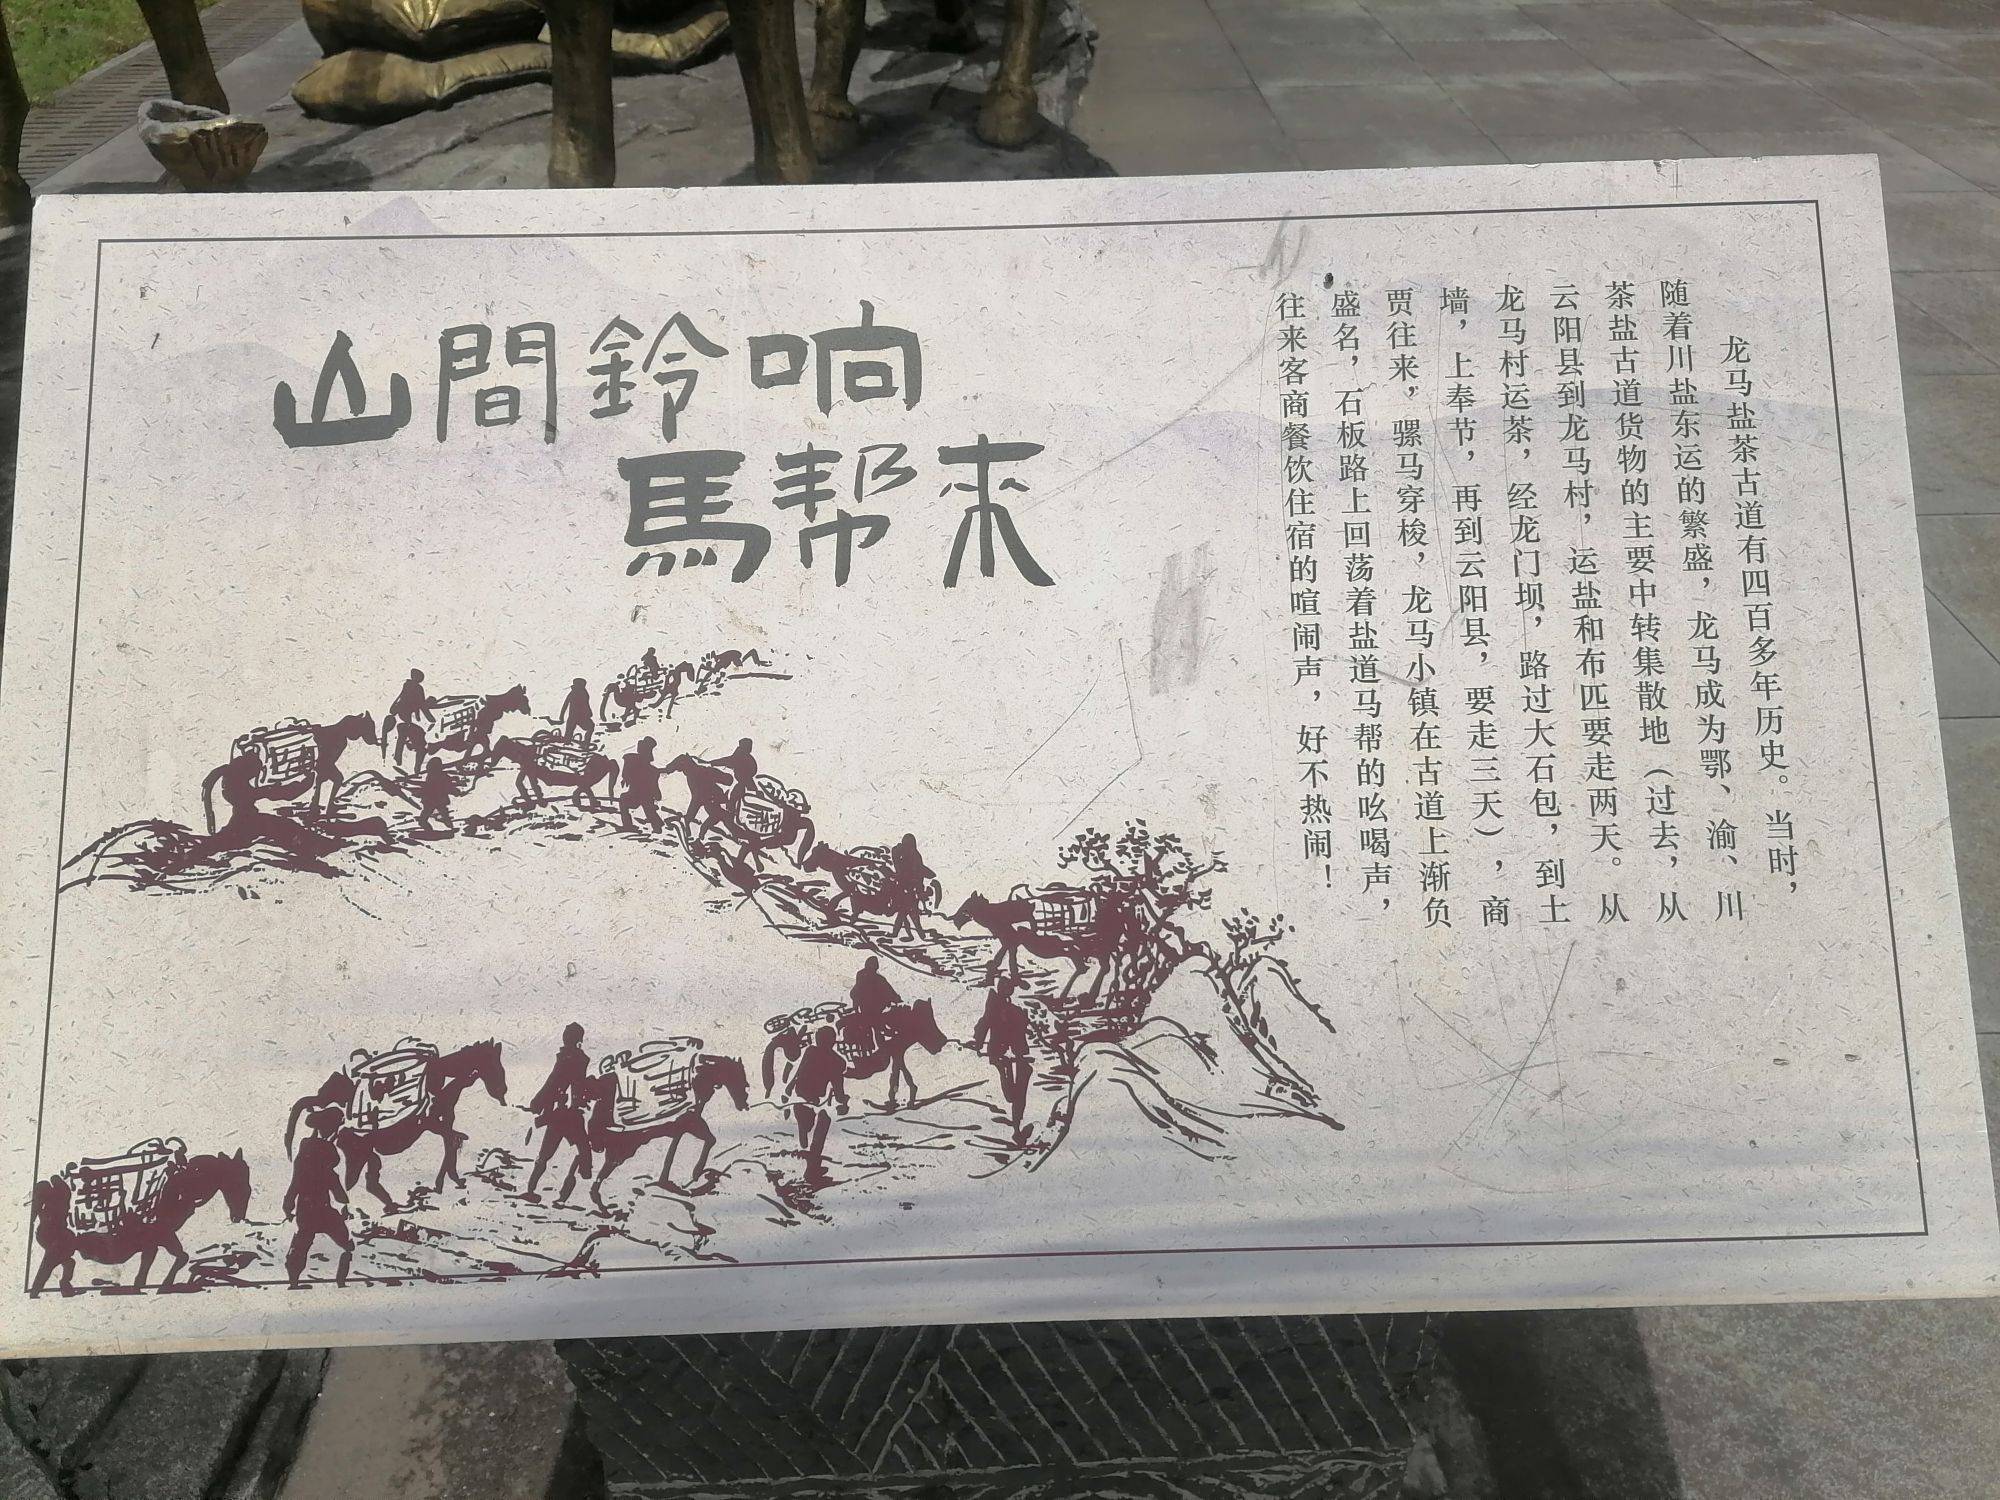 山間鈴响
馬帮来
龙马盐茶古道有四百多年历史。当时，
随着川盐东运的繁盛，龙马成为鄂、渝、川
茶盐古道货物的主要中转集散地（过去，从
云阳县到龙马村，运盐和布匹要走两天。从
龙马村运茶，经龙门坝，路过大石包，到土
墙，上奉节，再到云阳县，要走三天），商
贾往来，骡马穿梭，龙马小镇在古道上渐负
盛名，石板路上回荡着盐道马帮的吆喝声，
往来客商餐饮住宿的喧闹声，好不热闹！